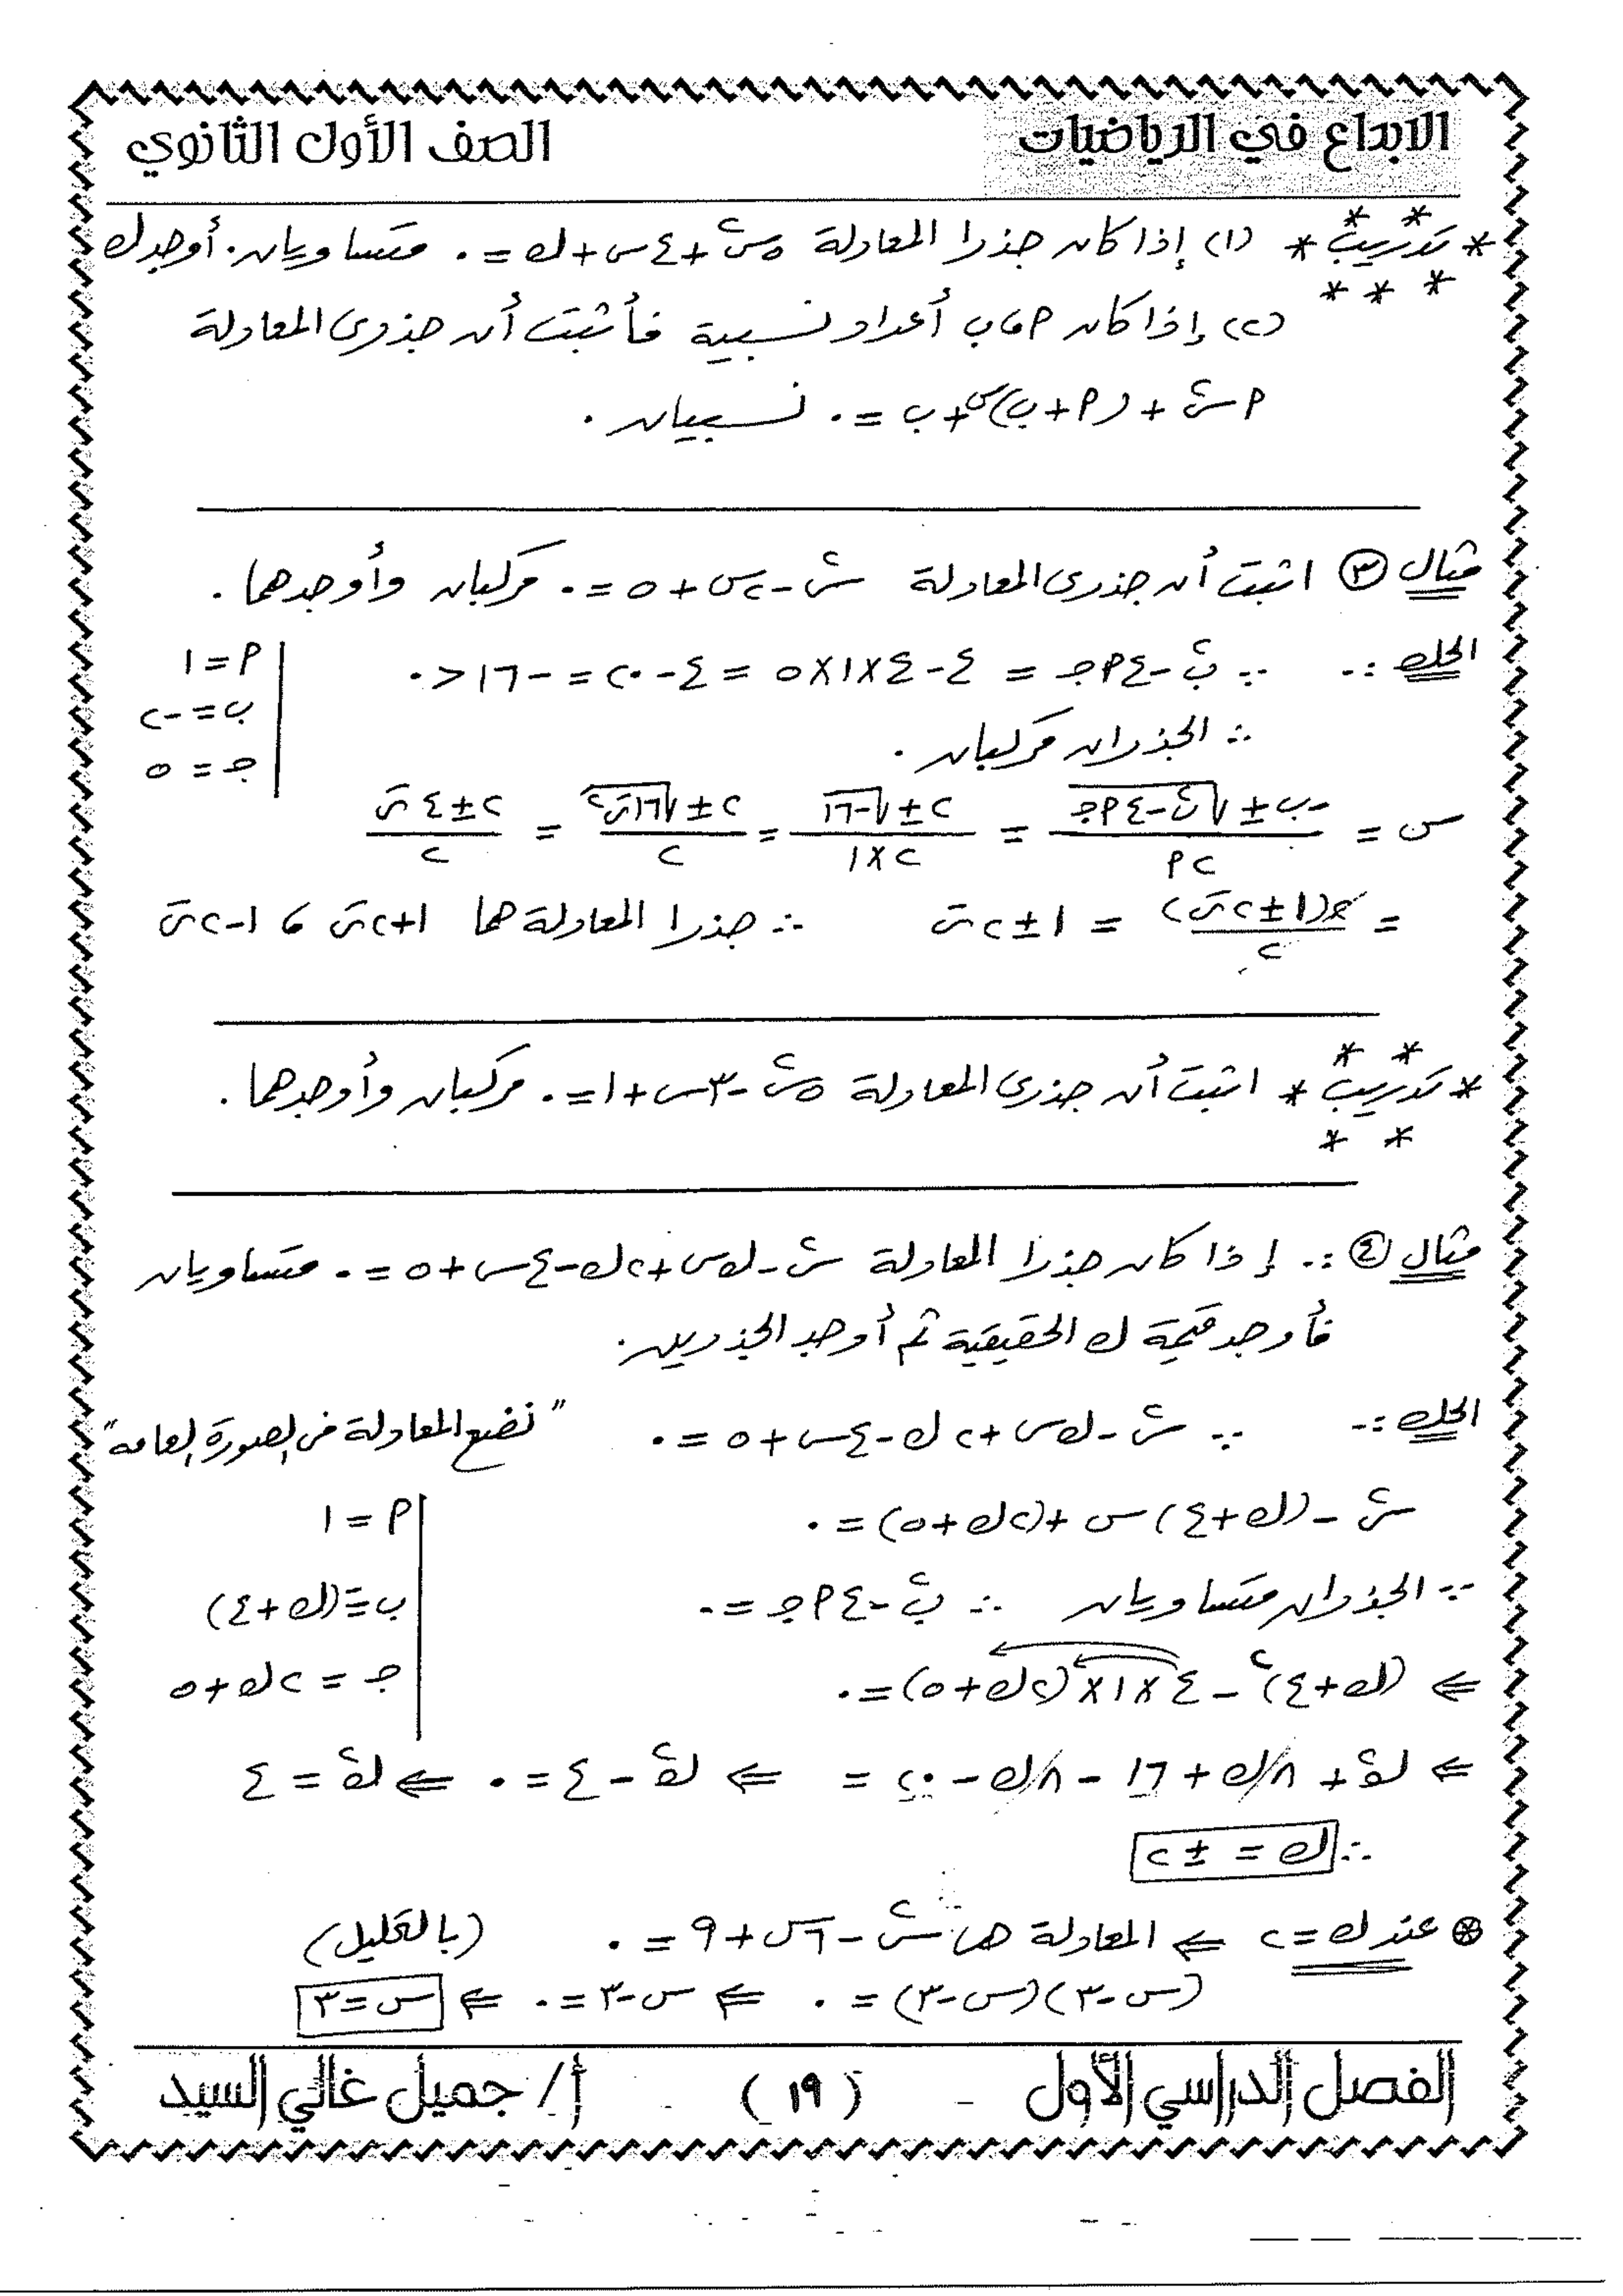 الابداع في الرياضيات
الصف الأول الثانوي
* تدريب * (١) إذا كان جذرا المعادلة ٥س٢ + ٤س + ك = ٠ متساويان. أوجد ك
(٢) إذا كان أ، ب أعداد نسبية فأثبت أن جذرى المعادلة
أس٢ + (أ + ب)س + ب = ٠ نسبيان.
مثال (٣) اثبت أن جذرى المعادلة س٢ - ٢س + ٥ = ٠ مركبان وأوجدهما.
الحل :- ∵ ب٢ - ٤أجـ = ٤ - ٤×١×٥ = ٤ - ٢٠ = -١٦ < ٠
أ = ١
ب = -٢
جـ = ٥
∴ الجذران مركبان.
س = (-ب ± √(ب٢ - ٤أجـ))/٢أ = (٢ ± √-١٦)/٢×١ = (٢ ± √١٦ت٢)/٢ = (٢ ± ٤ت)/٢
= ٢(١ ± ٢ت)/٢ = ١ ± ٢ت ∴ جذرا المعادلة هما ١+٢ت ، ١-٢ت
* تدريب * اثبت أن جذرى المعادلة ٥س٢ - ٣س + ١ = ٠ مركبان وأوجدهما.
مثال (٤) :. إذا كان جذرا المعادلة س٢ - ك س + ٢ك - ٤س + ٥ = ٠ متساويان
فأوجد قيمة ك الحقيقية ثم أوجد الجذرين.
الحل :- ∵ س٢ - ك س + ٢ك - ٤س + ٥ = ٠ "نضع المعادلة فى الصورة العامة"
س٢ - (ك + ٤)س + (٢ك + ٥) = ٠
أ = ١
∵ الجذران متساويان ∴ ب٢ - ٤أجـ = ٠
ب = -(ك + ٤)
⇐ (ك + ٤)٢ - ٤×١×(٢ك + ٥) = ٠
جـ = ٢ك + ٥
⇐ ك٢ + ٨ك + ١٦ - ٨ك - ٢٠ = ⇐ ك٢ - ٤ = ٠ ⇐ ك٢ = ٤
∴ ك = ± ٢
⊛ عند ك = ٢ ⇐ المعادلة هى س٢ - ٦س + ٩ = ٠ (بالتحليل)
(س - ٣)(س - ٣) = ٠ ⇐ س - ٣ = ٠ ⇐ س = ٣
الفصل الدراسي الأول
( ١٩ )
أ / جميل غالي السيد